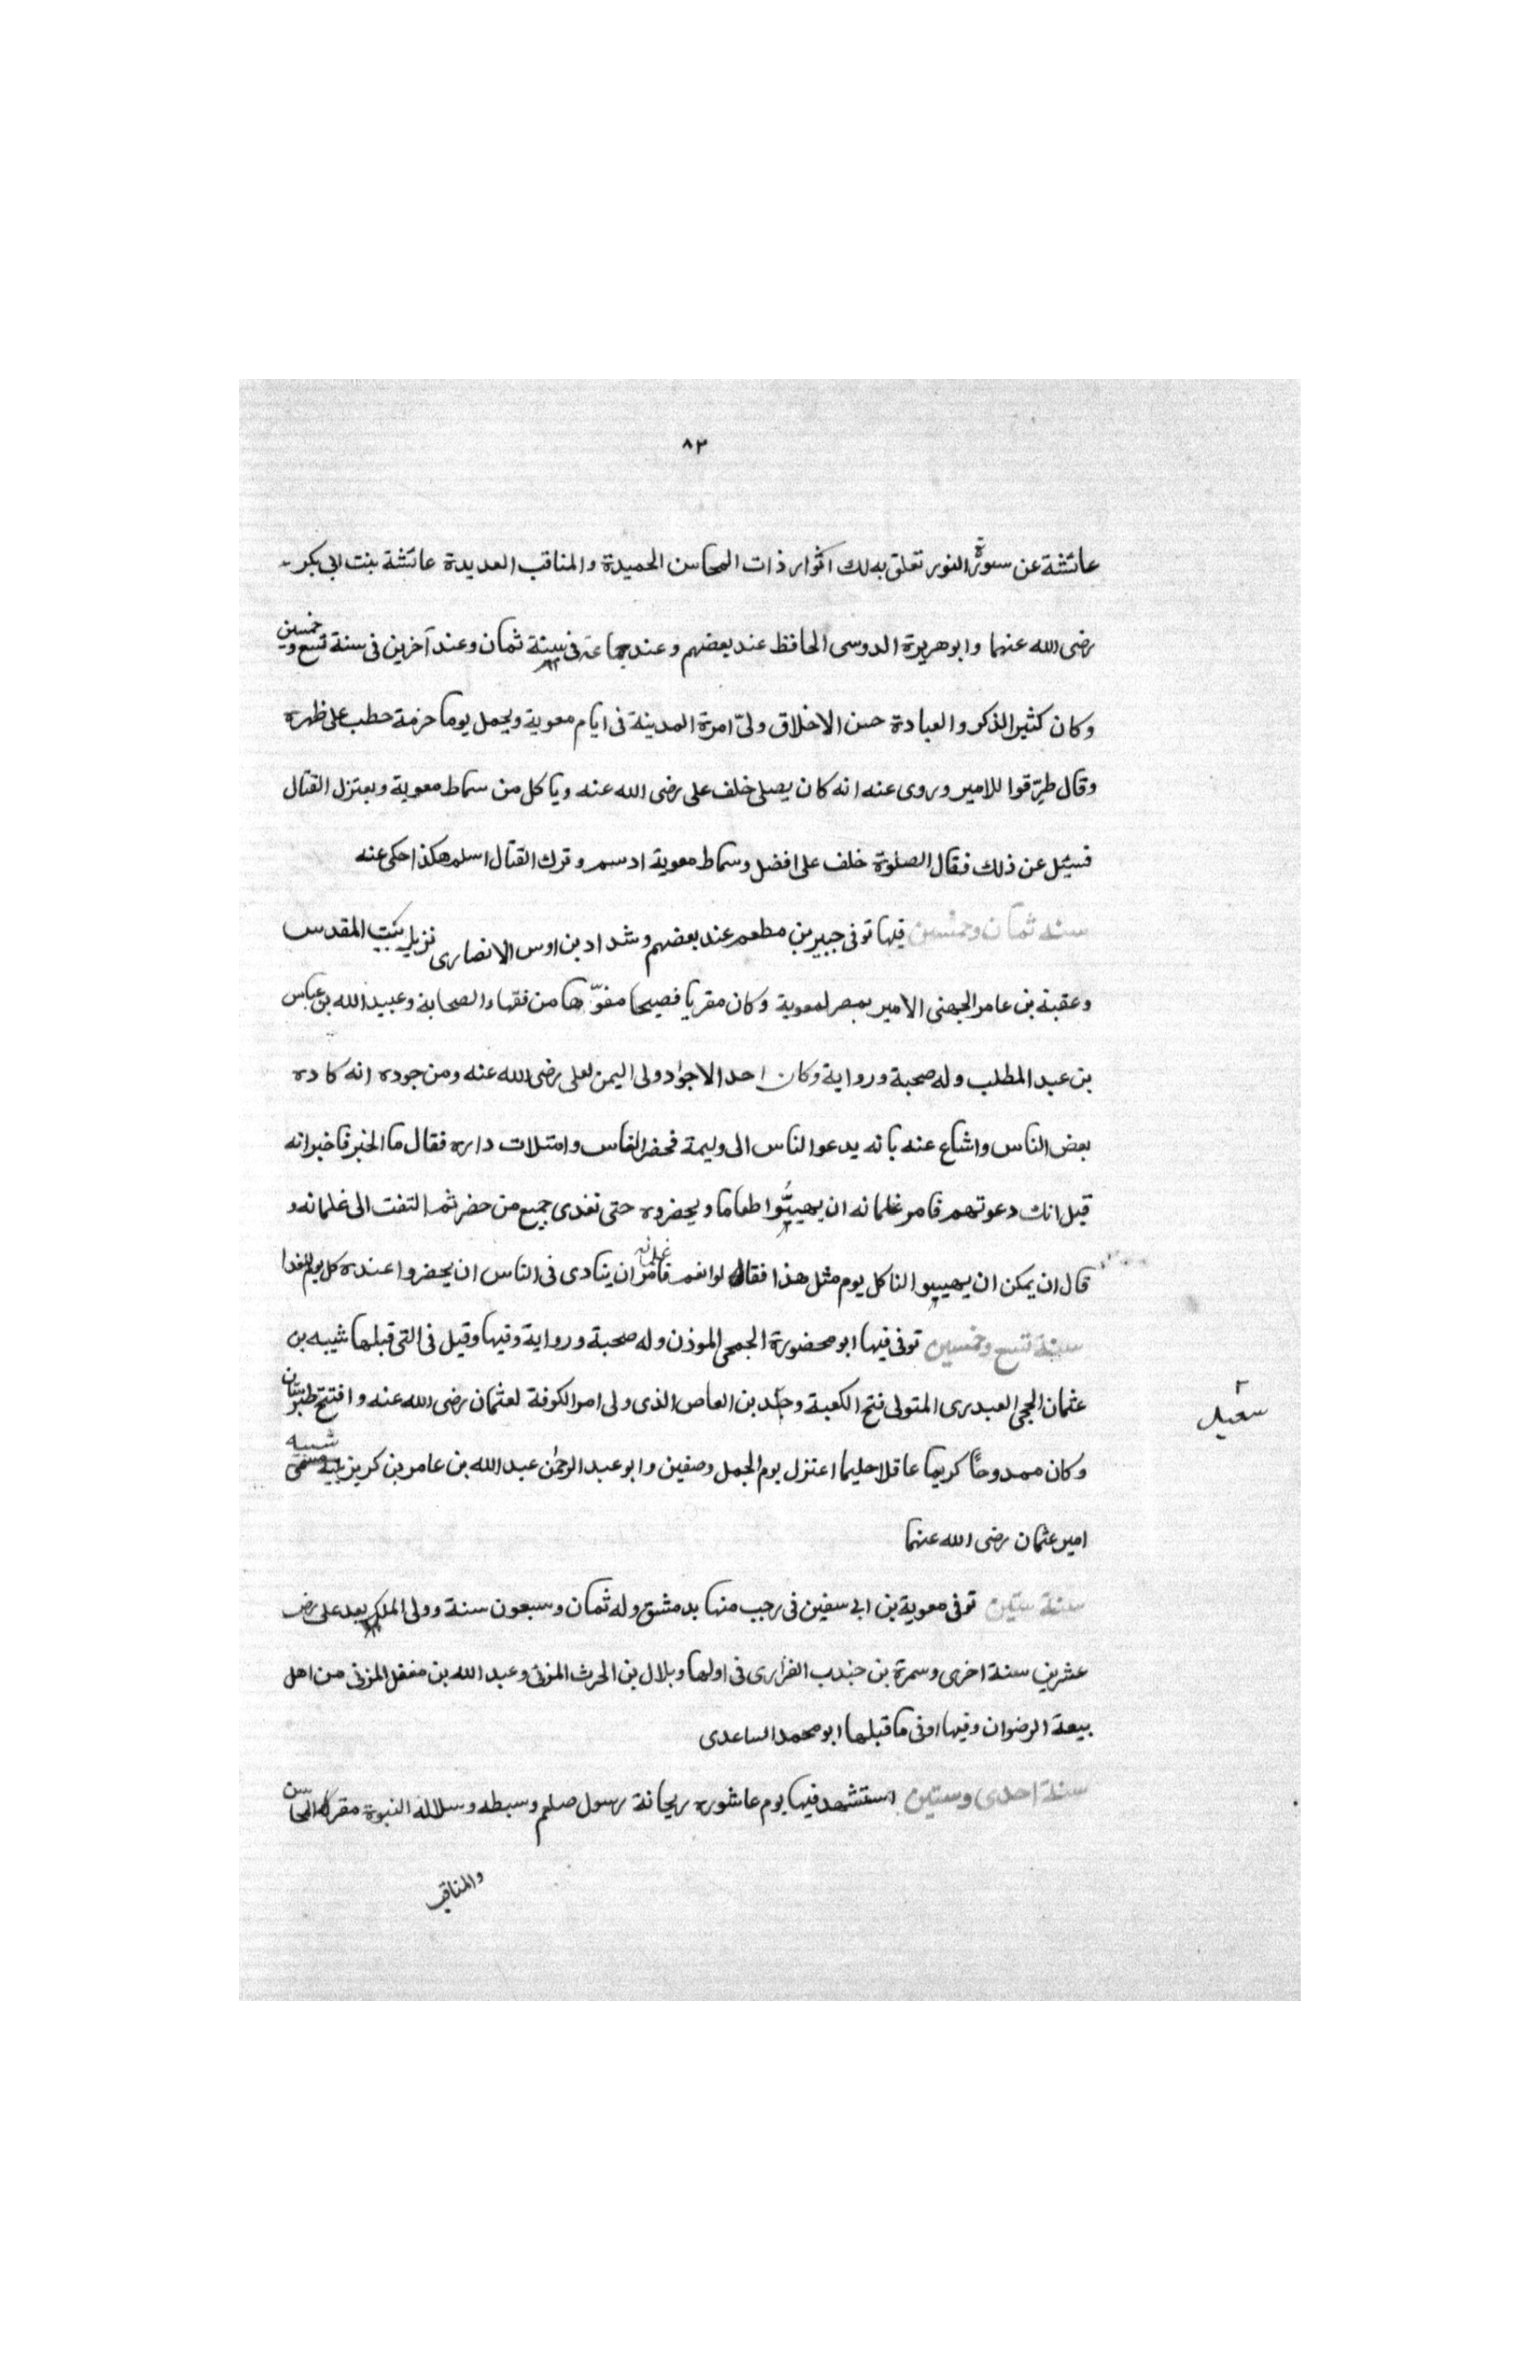 ٨٢
عائشة عن سورة النور تعلق به لك اثوار ذات المحاسن الحميدة والمناقب العديدة عائشة بنت ابى بكر
رضى الله عنهما وابو هريرة الدوسى الحافظ عند بعضهم وعند جماعة فى سنة ثمان وعند آخرين فى سنة تسع وخمسين
وكان كثير الذكر والعبادة حسن الاخلاق ولىّ امرة المدينة فى ايام معوية ويحمل يوما حزمة حطب على ظهره
وقال طرّقوا للامير وروى عنه انه كان يصلى خلف على رضى الله عنه وياكل من سماط معوية ويعتزل القتال
فسئل عن ذلك فقال الصلوة خلف على افضل وسماط معوية ادسم وترك القتال اسلم هكذا حكى عنه
سنة ثمان وخمسين فيها توفى جبير بن مطعم عند بعضهم وشداد بن اوس الانصارى نزيل بيت المقدس
وعقبة بن عامر الجهنى الامير بمصر لمعوية وكان مقريا فصيحا مفوّها من فقهاء الصحابة وعبيد الله بن عباس
بن عبد المطلب وله صحبة ورواية وكان احد الاجواد ولى اليمن لعلى رضى الله عنه ومن جوده انه كاده
بعض الناس واشاع عنه بانه يدعو الناس الى وليمة فحضر الناس وامتلات داره فقال ما الخبر فاخبر انه
قيل انك دعوتهم فامر غلمانه ان يهيئوا طعاما ويحضروه حتى تغدى جميع من حضر ثم التفت الى غلمانه و
قال ان يمكن ان يهييوا لنا كل يوم مثل هذا فقالوا نعم فامر غلمانه ان ينادى فى الناس ان يحضروا عنده كل يوم للغدا
سنة تسع وخمسين توفى فيها ابو محضورة الجمحى الموذن وله صحبة ورواية وفيها وقيل فى التى قبلها شيبه بن
عثمان الحجى العبدرى المتولى فتح الكعبة و بن العاص الذى ولى امر الكوفة لعثمان رضى الله عنه وافتتح طبرستان
سعيد
وكان ممدوحاً كريما عاقلا حليما اعتزل يوم الجمل وصفين وابو عبد الرحمن عبد الله بن عامر بن كريز شبيه
امير عثمان رضى الله عنهما
سنة ستين توفى معوية بن ابى سفين فى رجب منها بدمشق وله ثمان وسبعون سنة وولى الملك بعد على رض
عشرين سنة اخرى وسمرة بن جندب الفزارى فى اولها وبلال بن الحرث المزنى وعبد الله بن مغفل المزنى من اهل
بيعة الرضوان وفيها اوفى ما قبلها ابو محمد الساعدى
سنة احدى وستين استشهد فيها يوم عاشوره ريحانة رسول صلعم وسبطه وسلالة النبوة مقر المحاسن
والمناقب